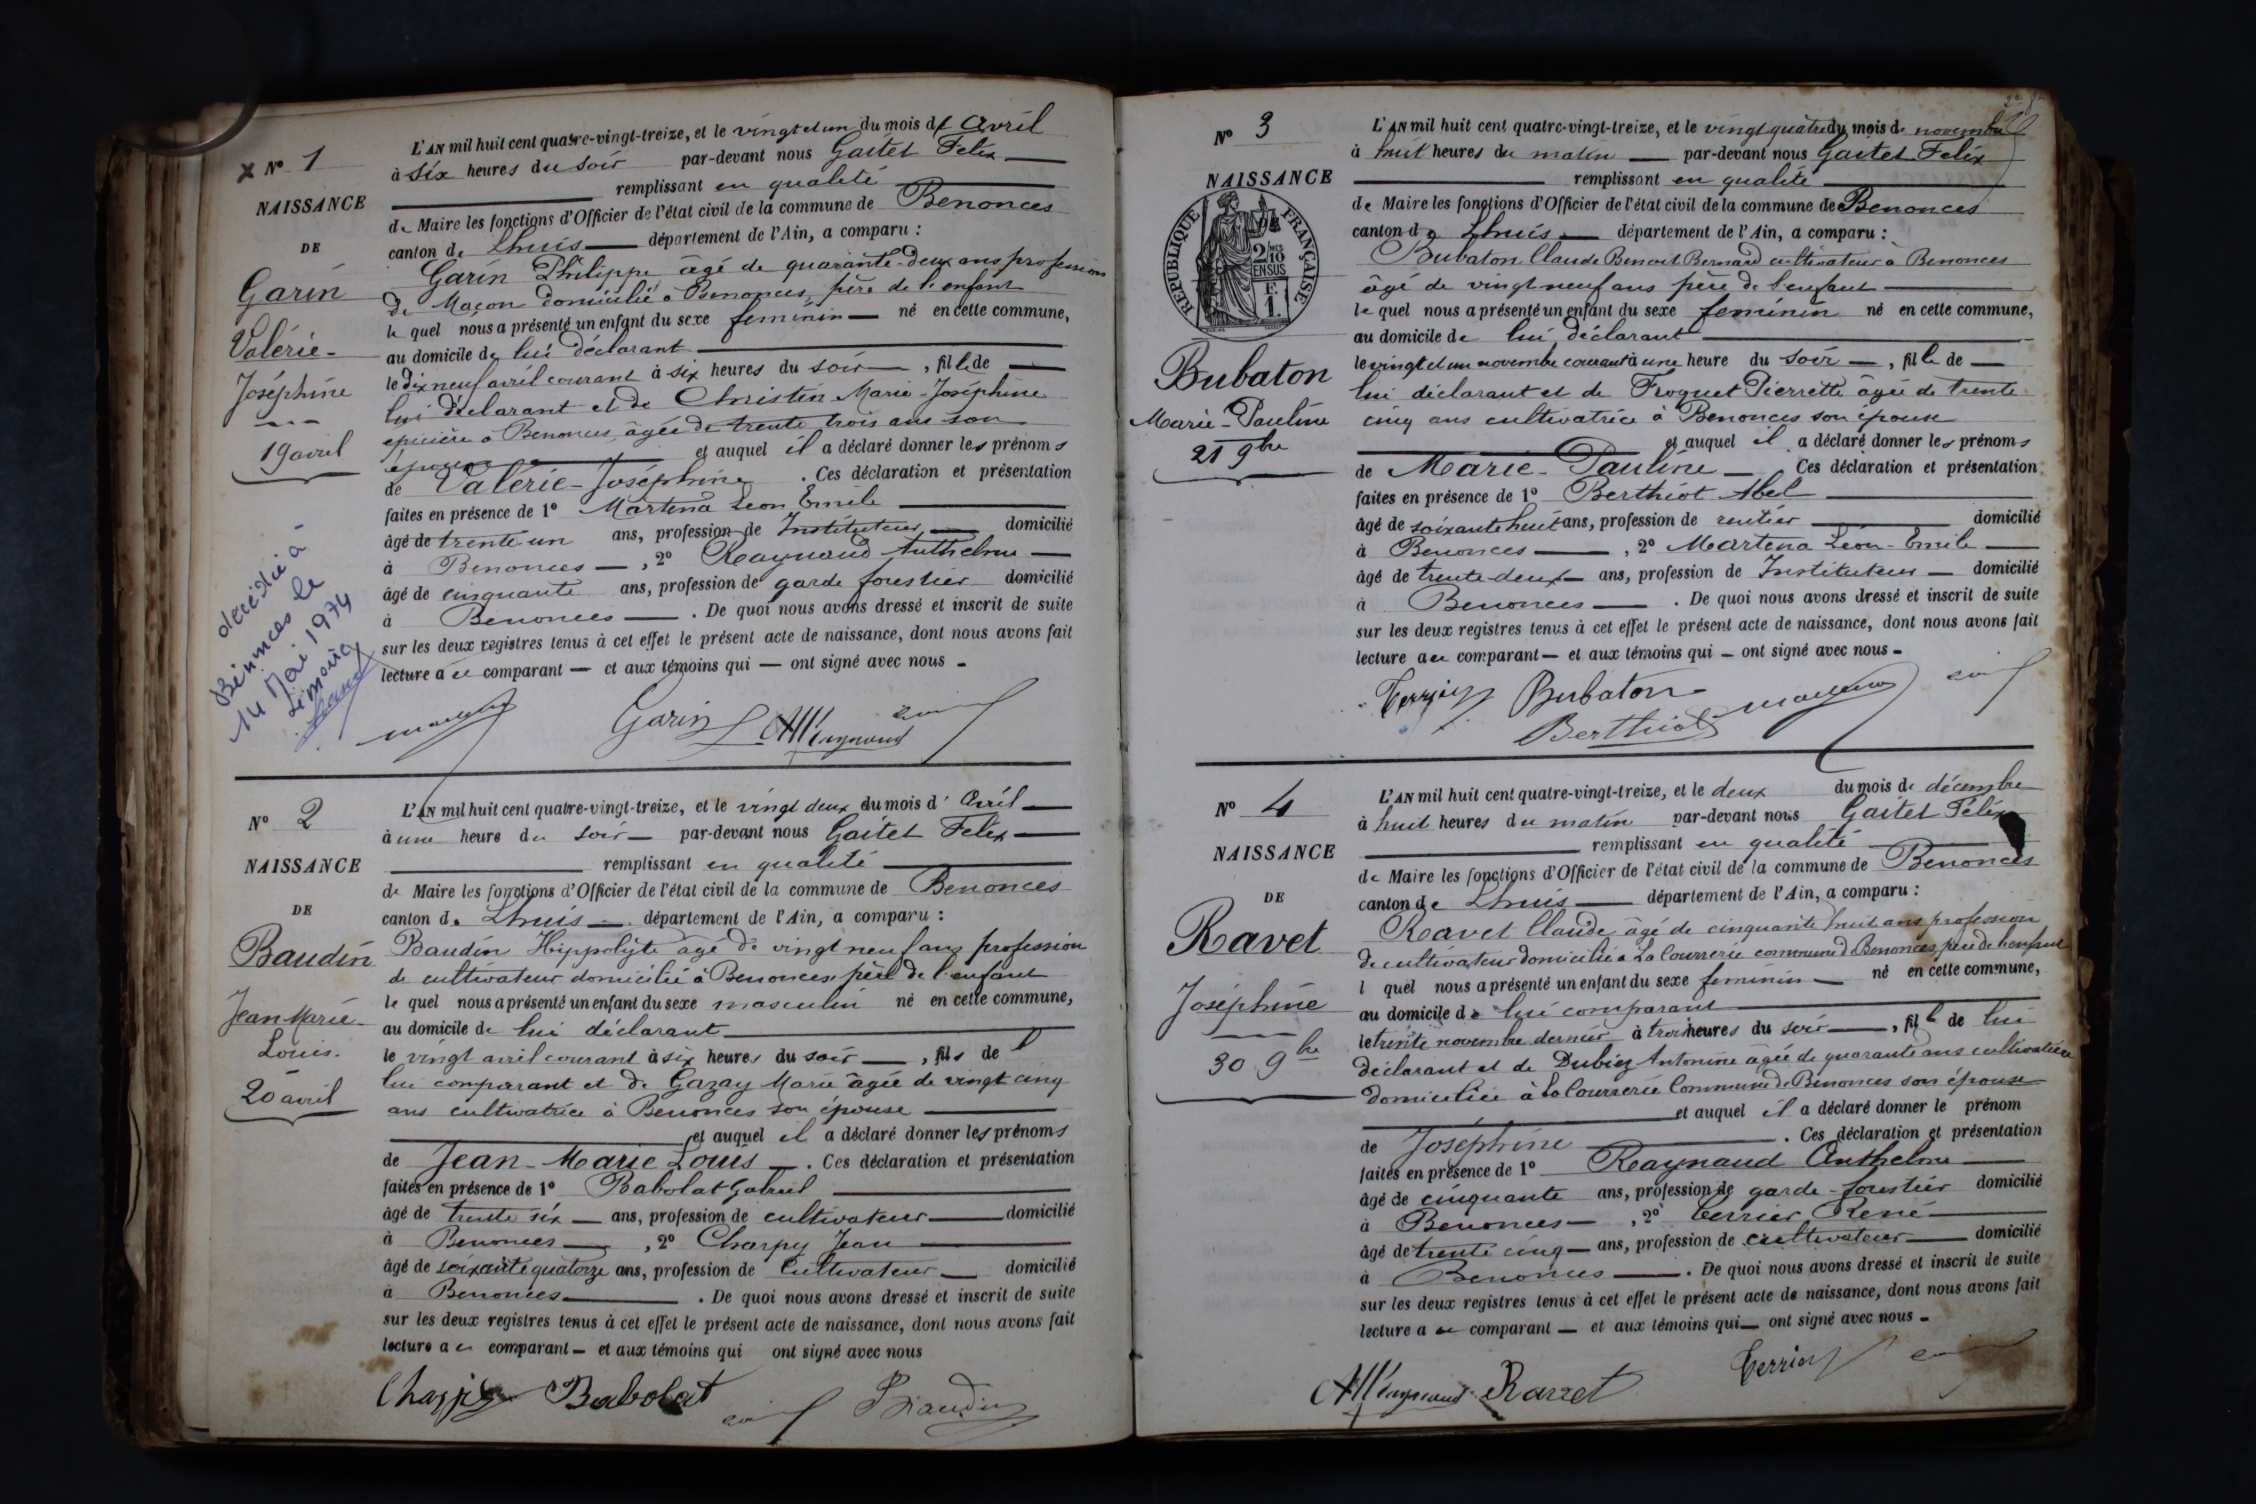 × N° 1
NAISSANCE
DE
Garin
Valérie-
Joséphine
19 avril
décédée à
Bénonces le
14 Mai 1974
L'AN mil huit cent quatre-vingt-treize, et le vingt et un du mois d'avril
à six heures du soir par-devant nous Gaitet Félix
remplissant en qualité
de Maire les fonctions d'Officier de l'état civil de la commune de Benonces
canton de Lhuis département de l'Ain, a comparu :
Garin Philippe âgé de quarante-deux ans profession
de Maçon domicilié à Benonces, père de l'enfant
le quel nous a présenté un enfant du sexe feminin né en cette commune,
au domicile de lui déclarant
le dix neuf avril courant à six heures du soir, fille de
lui déclarant et de Christin Marie-Joséphine
epicière à Benonces, âgée de trente trois ans son
épouse et auquel il a déclaré donner les prénoms
de Valérie-Joséphine. Ces déclaration et présentation
faites en présence de 1° Martena Léon Emile
âgé de trente un ans, profession de Instituteur domicilié
à Benonces, 2° Raynaud Anthelme
âgé de cinquante ans, profession de garde forestier domicilié
à Benonces. De quoi nous avons dressé et inscrit de suite
sur les deux registres tenus à cet effet le présent acte de naissance, dont nous avons fait
lecture a ce comparant et aux témoins qui ont signé avec nous
Garin
N° 2
NAISSANCE
DE
Baudin
Jean Marie-
Louis.
20 avril
L'AN mil huit cent quatre-vingt-treize, et le vingt deux du mois d'Avril
à une heure du soir par-devant nous Gaitet Félix
remplissant en qualité
de Maire les fonctions d'Officier de l'état civil de la commune de Benonces
canton de Lhuis département de l'Ain, a comparu :
Baudin Hippolyte âgé de vingt neuf ans profession
de cultivateur domicilié à Benonces père de l'enfant
le quel nous a présenté un enfant du sexe masculin né en cette commune,
au domicile de lui déclarant
le vingt avril courant à six heures du soir, fils de
lui comparant et de Gazay Marie âgée de vingt cinq
ans cultivatrice à Benonces son épouse
et auquel il a déclaré donner les prénoms
de Jean-Marie Louis. Ces déclaration et présentation
faites en présence de 1° Babolat Gabriel
âgé de trente six ans, profession de cultivateur domicilié
à Benonces, 2° Charpy Jean
âgé de soixante quatorze ans, profession de Cultivateur domicilié
à Benonces. De quoi nous avons dressé et inscrit de suite
sur les deux registres tenus à cet effet le présent acte de naissance, dont nous avons fait
lecture a ce comparant et aux témoins qui ont signé avec nous
Charpy Babolat Baudin
N° 3
NAISSANCE
RÉPUBLIQUE FRANÇAISE
2/10 EN SUS
F.
1.
Bubaton
Marie-Pauline
21 9bre
L'AN mil huit cent quatre-vingt-treize, et le vingt quatre du mois de novembre
à huit heures du matin par-devant nous Gaitet Félix
remplissant en qualité
de Maire les fonctions d'Officier de l'état civil de la commune de Benonces
canton de Lhuis département de l'Ain, a comparu :
Bubaton Claude Benoit Bernard cultivateur à Benonces
âgé de vingt neuf ans père de l'enfant
le quel nous a présenté un enfant du sexe feminin né en cette commune,
au domicile de lui déclarant
le vingt et un novembre courant à une heure du soir, fille de
lui déclarant et de Froquet Pierrette âgée de trente
cinq ans cultivatrice à Benonces son épouse
et auquel il a déclaré donner les prénoms
de Marie-Pauline Ces déclaration et présentation
faites en présence de 1° Berthiot Abel
âgé de soixante huit ans, profession de rentier domicilié
à Benonces, 2° Martena Léon-Emile
âgé de trente-deux ans, profession de Instituteur domicilié
à Benonces. De quoi nous avons dressé et inscrit de suite
sur les deux registres tenus à cet effet le présent acte de naissance, dont nous avons fait
lecture a ce comparant et aux témoins qui ont signé avec nous
Bubaton
Berthiot
N° 4
NAISSANCE
DE
Ravet
Joséphine
30 9bre
L'AN mil huit cent quatre-vingt-treize, et le deux du mois de décembre
à huit heures du matin par-devant nous Gaitet Félix
remplissant en qualité
de Maire les fonctions d'Officier de l'état civil de la commune de Benonces
canton de Lhuis département de l'Ain, a comparu :
Ravet Claude, âgé de cinquante huit ans profession
de cultivateur domicilié à La Courrerie commune de Benonces, père de l'enfant
l quel nous a présenté un enfant du sexe feminin né en cette commune,
au domicile de lui comparant
le trente novembre dernier à trois heures du soir, fille de lui
déclarant et de Dubiez Antonine âgée de quarante ans cultivatrice
domiciliée à la Courrerie Commune de Benonces son épouse
et auquel il a déclaré donner le prénom
de Joséphine. Ces déclaration et présentation
faites en présence de 1° Raynaud Anthelme
âgé de cinquante ans, profession de garde-forestier domicilié
à Benonces, 2° Terrier René
âgé de trente cinq ans, profession de cultivateur domicilié
à Benonces. De quoi nous avons dressé et inscrit de suite
sur les deux registres tenus à cet effet le présent acte de naissance, dont nous avons fait
lecture a ce comparant et aux témoins qui ont signé avec nous
Ravet Terrier